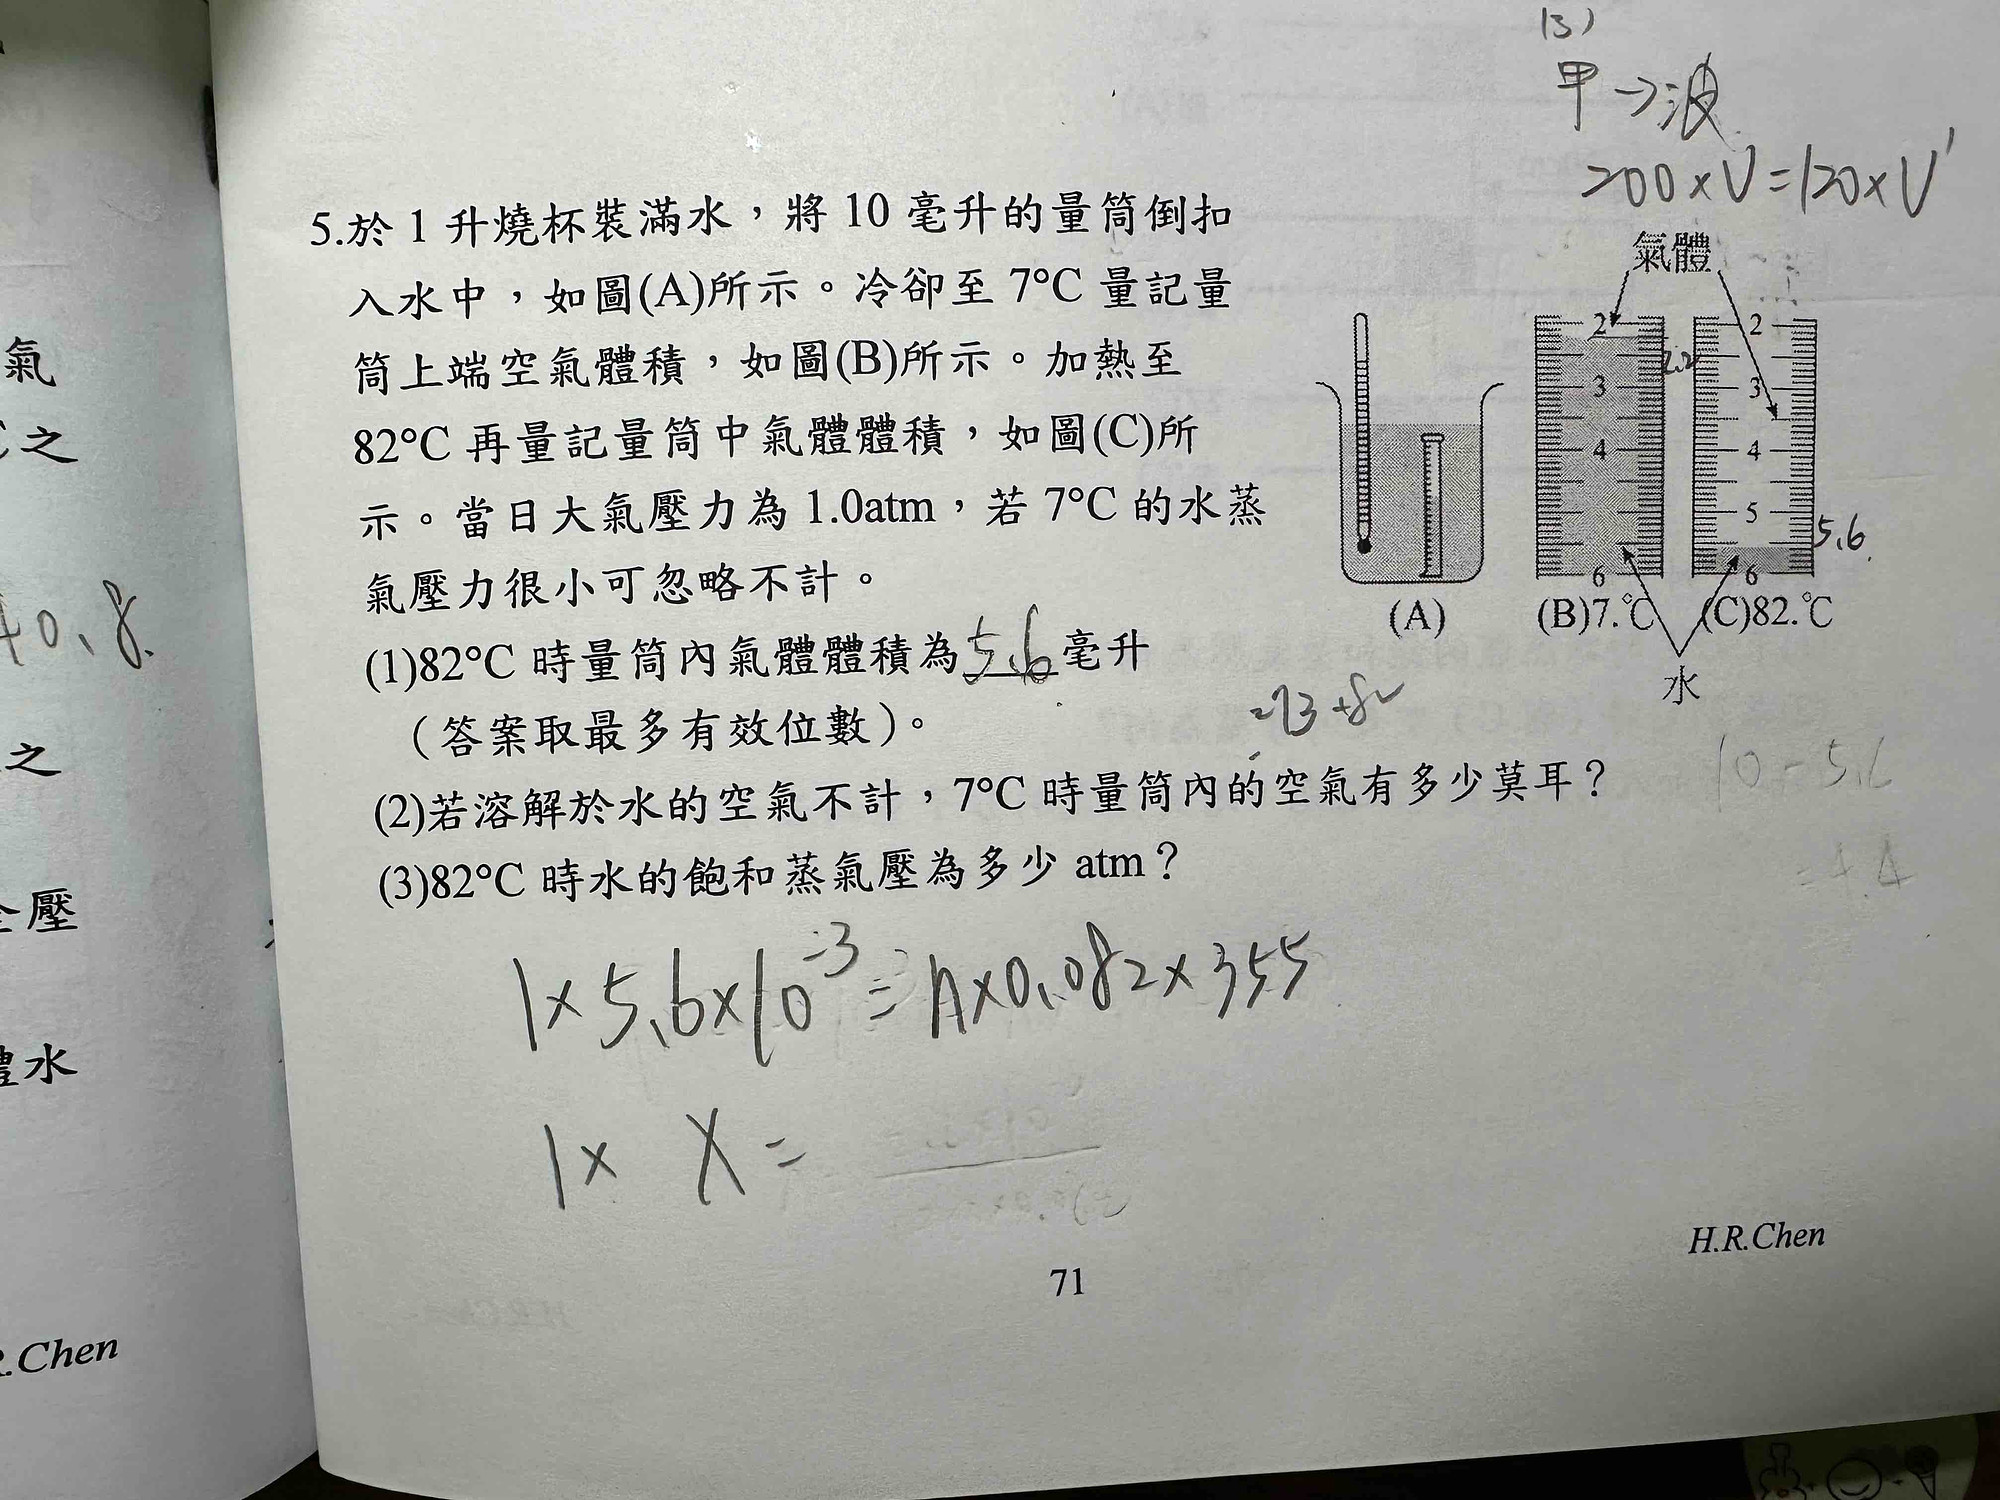 (3)
甲→波
200×V=120×V'
5.於 1 升燒杯裝滿水，將 10 毫升的量筒倒扣
入水中，如圖(A)所示。冷卻至 7°C 量記量
筒上端空氣體積，如圖(B)所示。加熱至
82°C 再量記量筒中氣體體積，如圖(C)所
示。當日大氣壓力為 1.0atm，若 7°C 的水蒸
氣壓力很小可忽略不計。
(1)82°C 時量筒內氣體體積為5.6毫升
（答案取最多有效位數）。
(2)若溶解於水的空氣不計，7°C 時量筒內的空氣有多少莫耳？
(3)82°C 時水的飽和蒸氣壓為多少 atm？
氣體
2
3
4
5
6
2
3
4
6
2.2
5.6
(A)
(B)7.°C
(C)82.°C
水
273+82
10-5.6
=4.4
1×5.6×10⁻³=n×0.082×355
1× X=
H.R.Chen
71
氣
之
40.8
之
全壓
體水
R.Chen